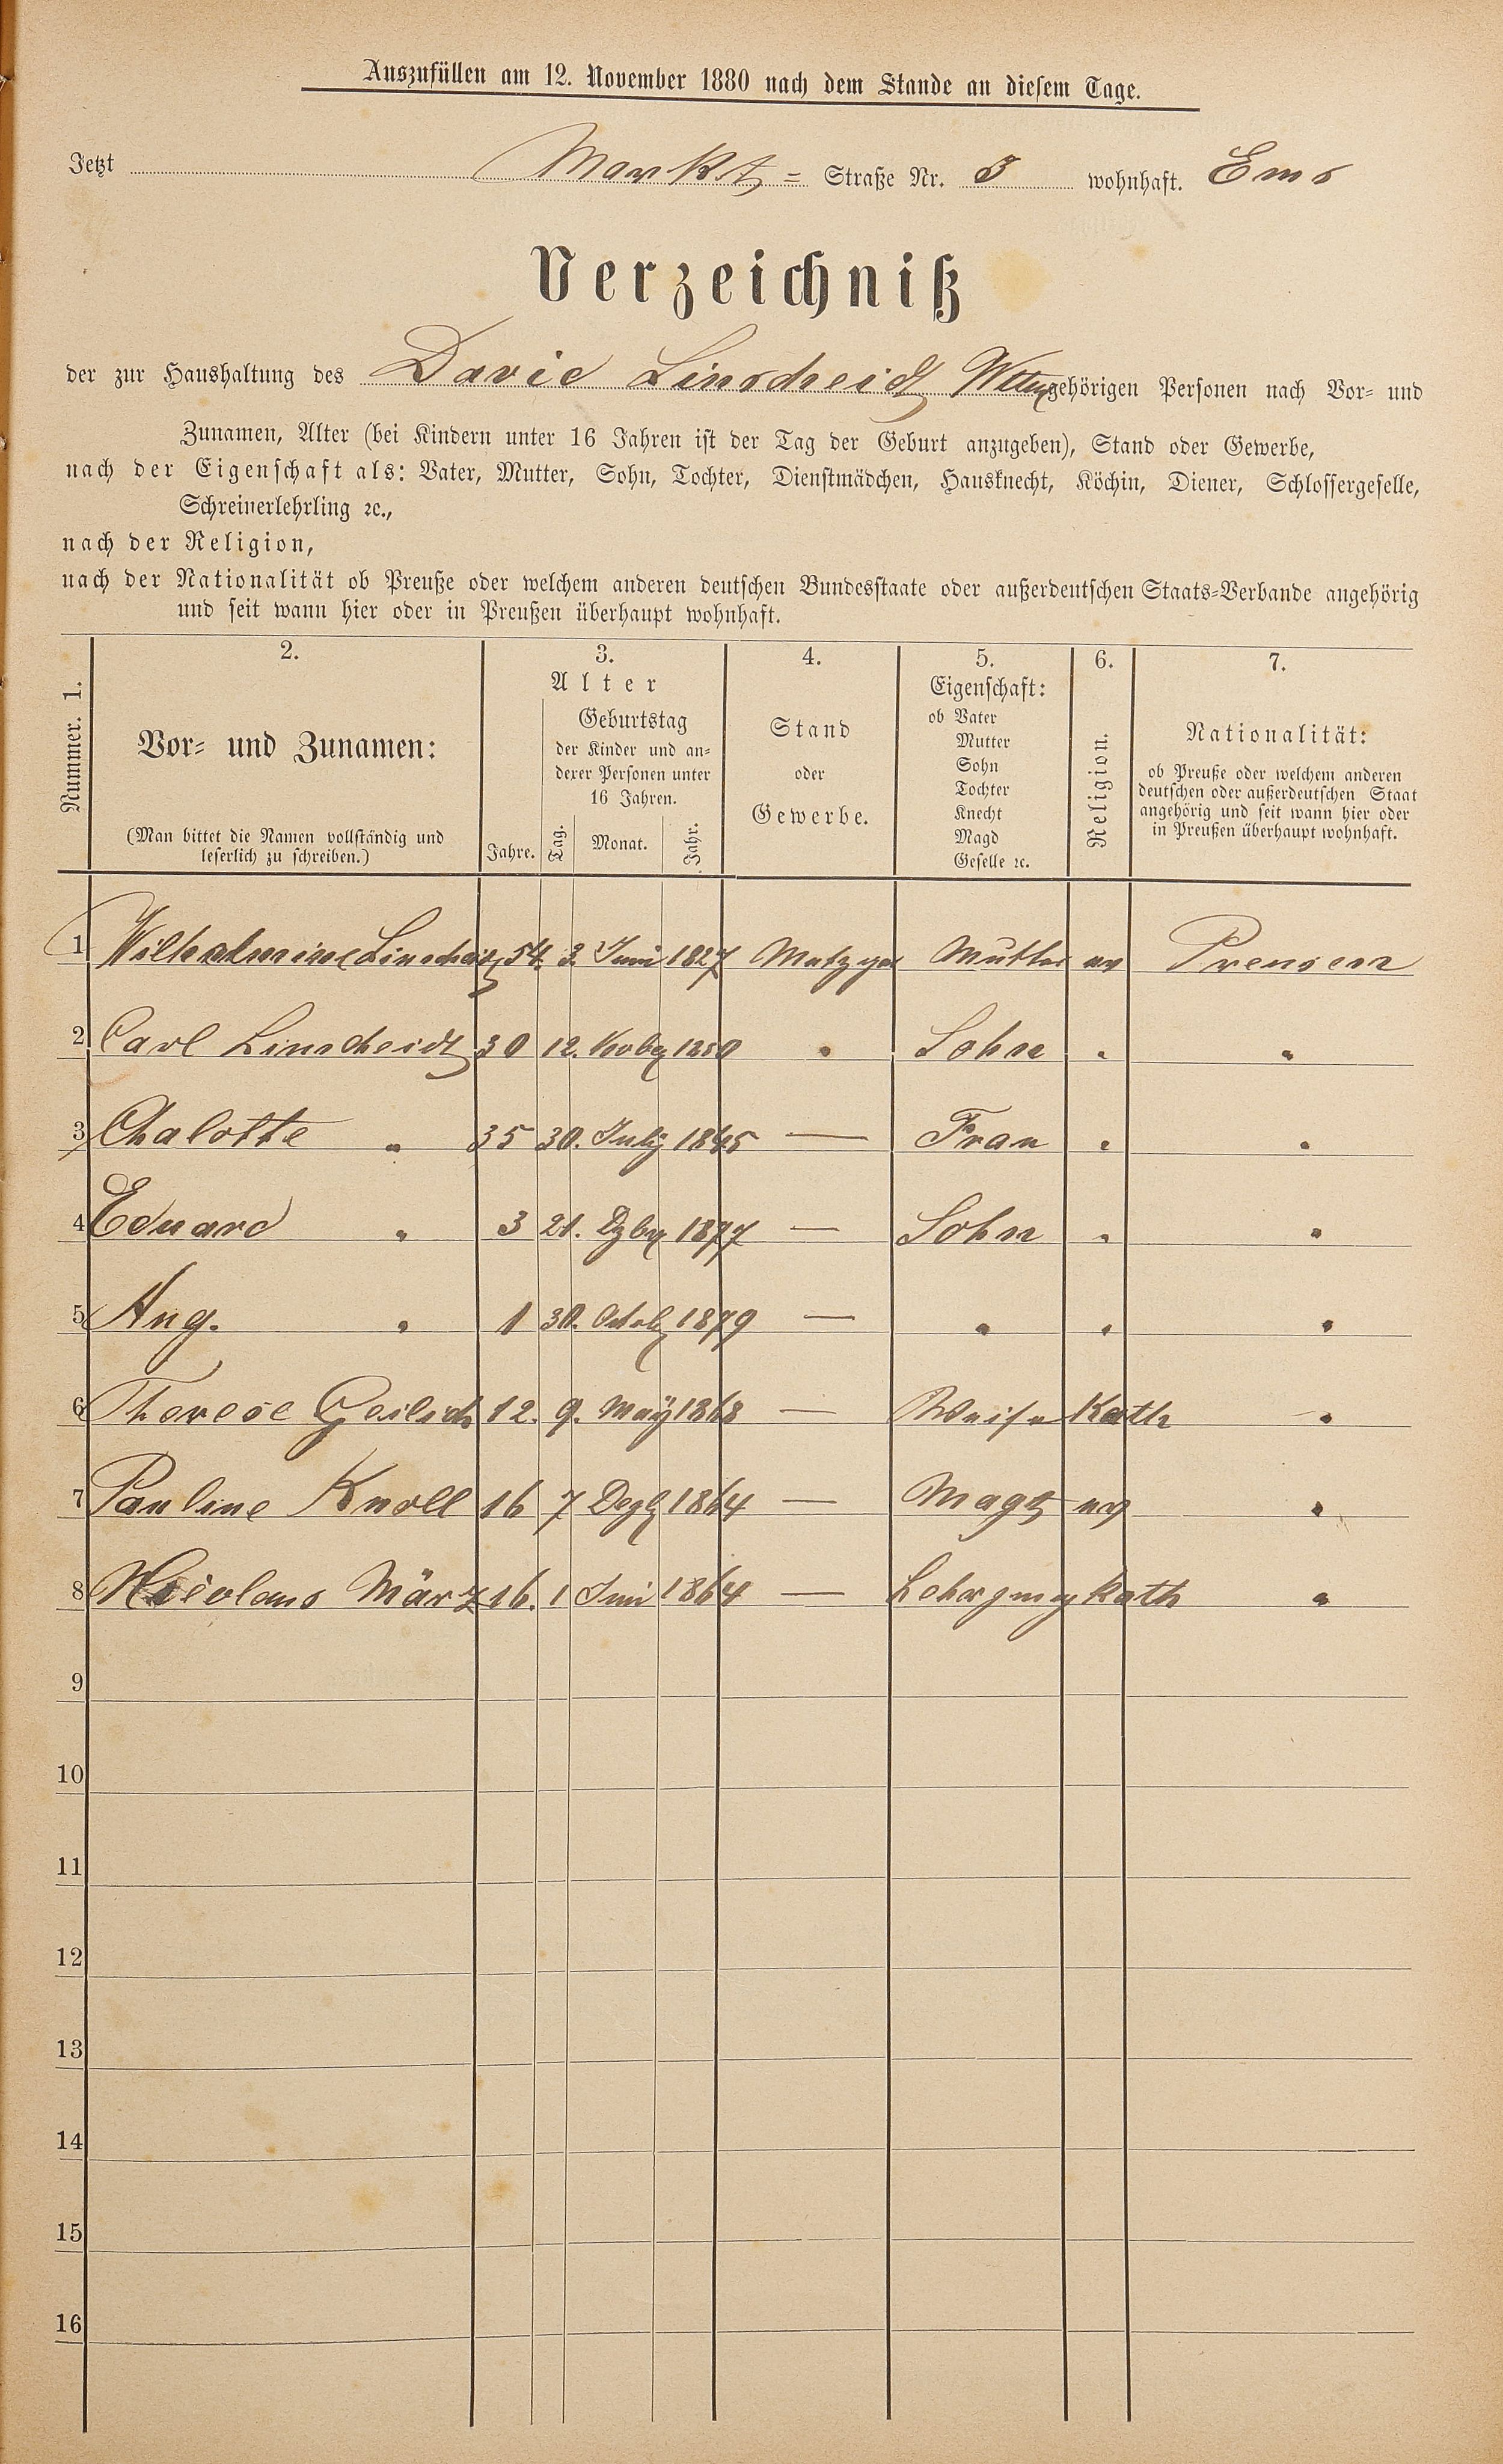 Auszufüllen am 12. November 1880 nach dem Stande an diesem Tage.
Jetzt Markt = Straße Nr. 3 wohnhaft. Ems
Verzeichniß
der zur Haushaltung des David Linscheidt gehörigen Personen nach Vor- und
Zunamen, Alter (bei Kindern unter 16 Jahren ist der Tag der Geburt anzugeben), Stand oder Gewerbe,
nach der Eigenschaft als: Vater, Mutter, Sohn, Tochter, Dienstmädchen, Hausknecht, Köchin, Diener, Schlossergeselle,
Schreinerlehrling ꝛc.,
nach der Religion,
nach der Nationalität ob Preuße oder welchem anderen deutschen Bundesstaate oder außerdeutschen Staats-Verbande angehörig
und seit wann hier oder in Preußen überhaupt wohnhaft.
Nummer. 1.
2.
Vor- und Zunamen:
(Man bittet die Namen vollständig und
leserlich zu schreiben.)
3.
Alter
Jahre.
Geburtstag
der Kinder und an-
derer Personen unter
16 Jahren.
Tag. Monat. Jahr.
4.
Stand
oder
Gewerbe.
5.
Eigenschaft:
ob Vater
Mutter
Sohn
Tochter
Knecht
Magd
Geselle ꝛc.
6.
Religion.
7.
Nationalität:
ob Preuße oder welchem anderen
deutschen oder außerdeutschen Staat
angehörig und seit wann hier oder
in Preußen überhaupt wohnhaft.
1 Wilhelmine Linscheidt 54. 3. Juni 1827 Metzger Mutter ev Preusen
2 Carl Linscheidt 30 12. Novbr 1850 " Sohn " "
3 Chalotte " 35 30. July 1845 — Frau " "
4 Eduard " 3 21. Dzbr 1877 — Sohn " "
5 Aug. " 1 30. Octob 1879 — " " "
6 Therese 12. 9. May 1868 — Waise Kath "
7 Pauline Knoll 16 7 Dezb 1864 — Magt ev "
8 Nicolaus März 16. 1 Juni 1864 — Lehrjung Kath "
9
10
11
12
13
14
15
16